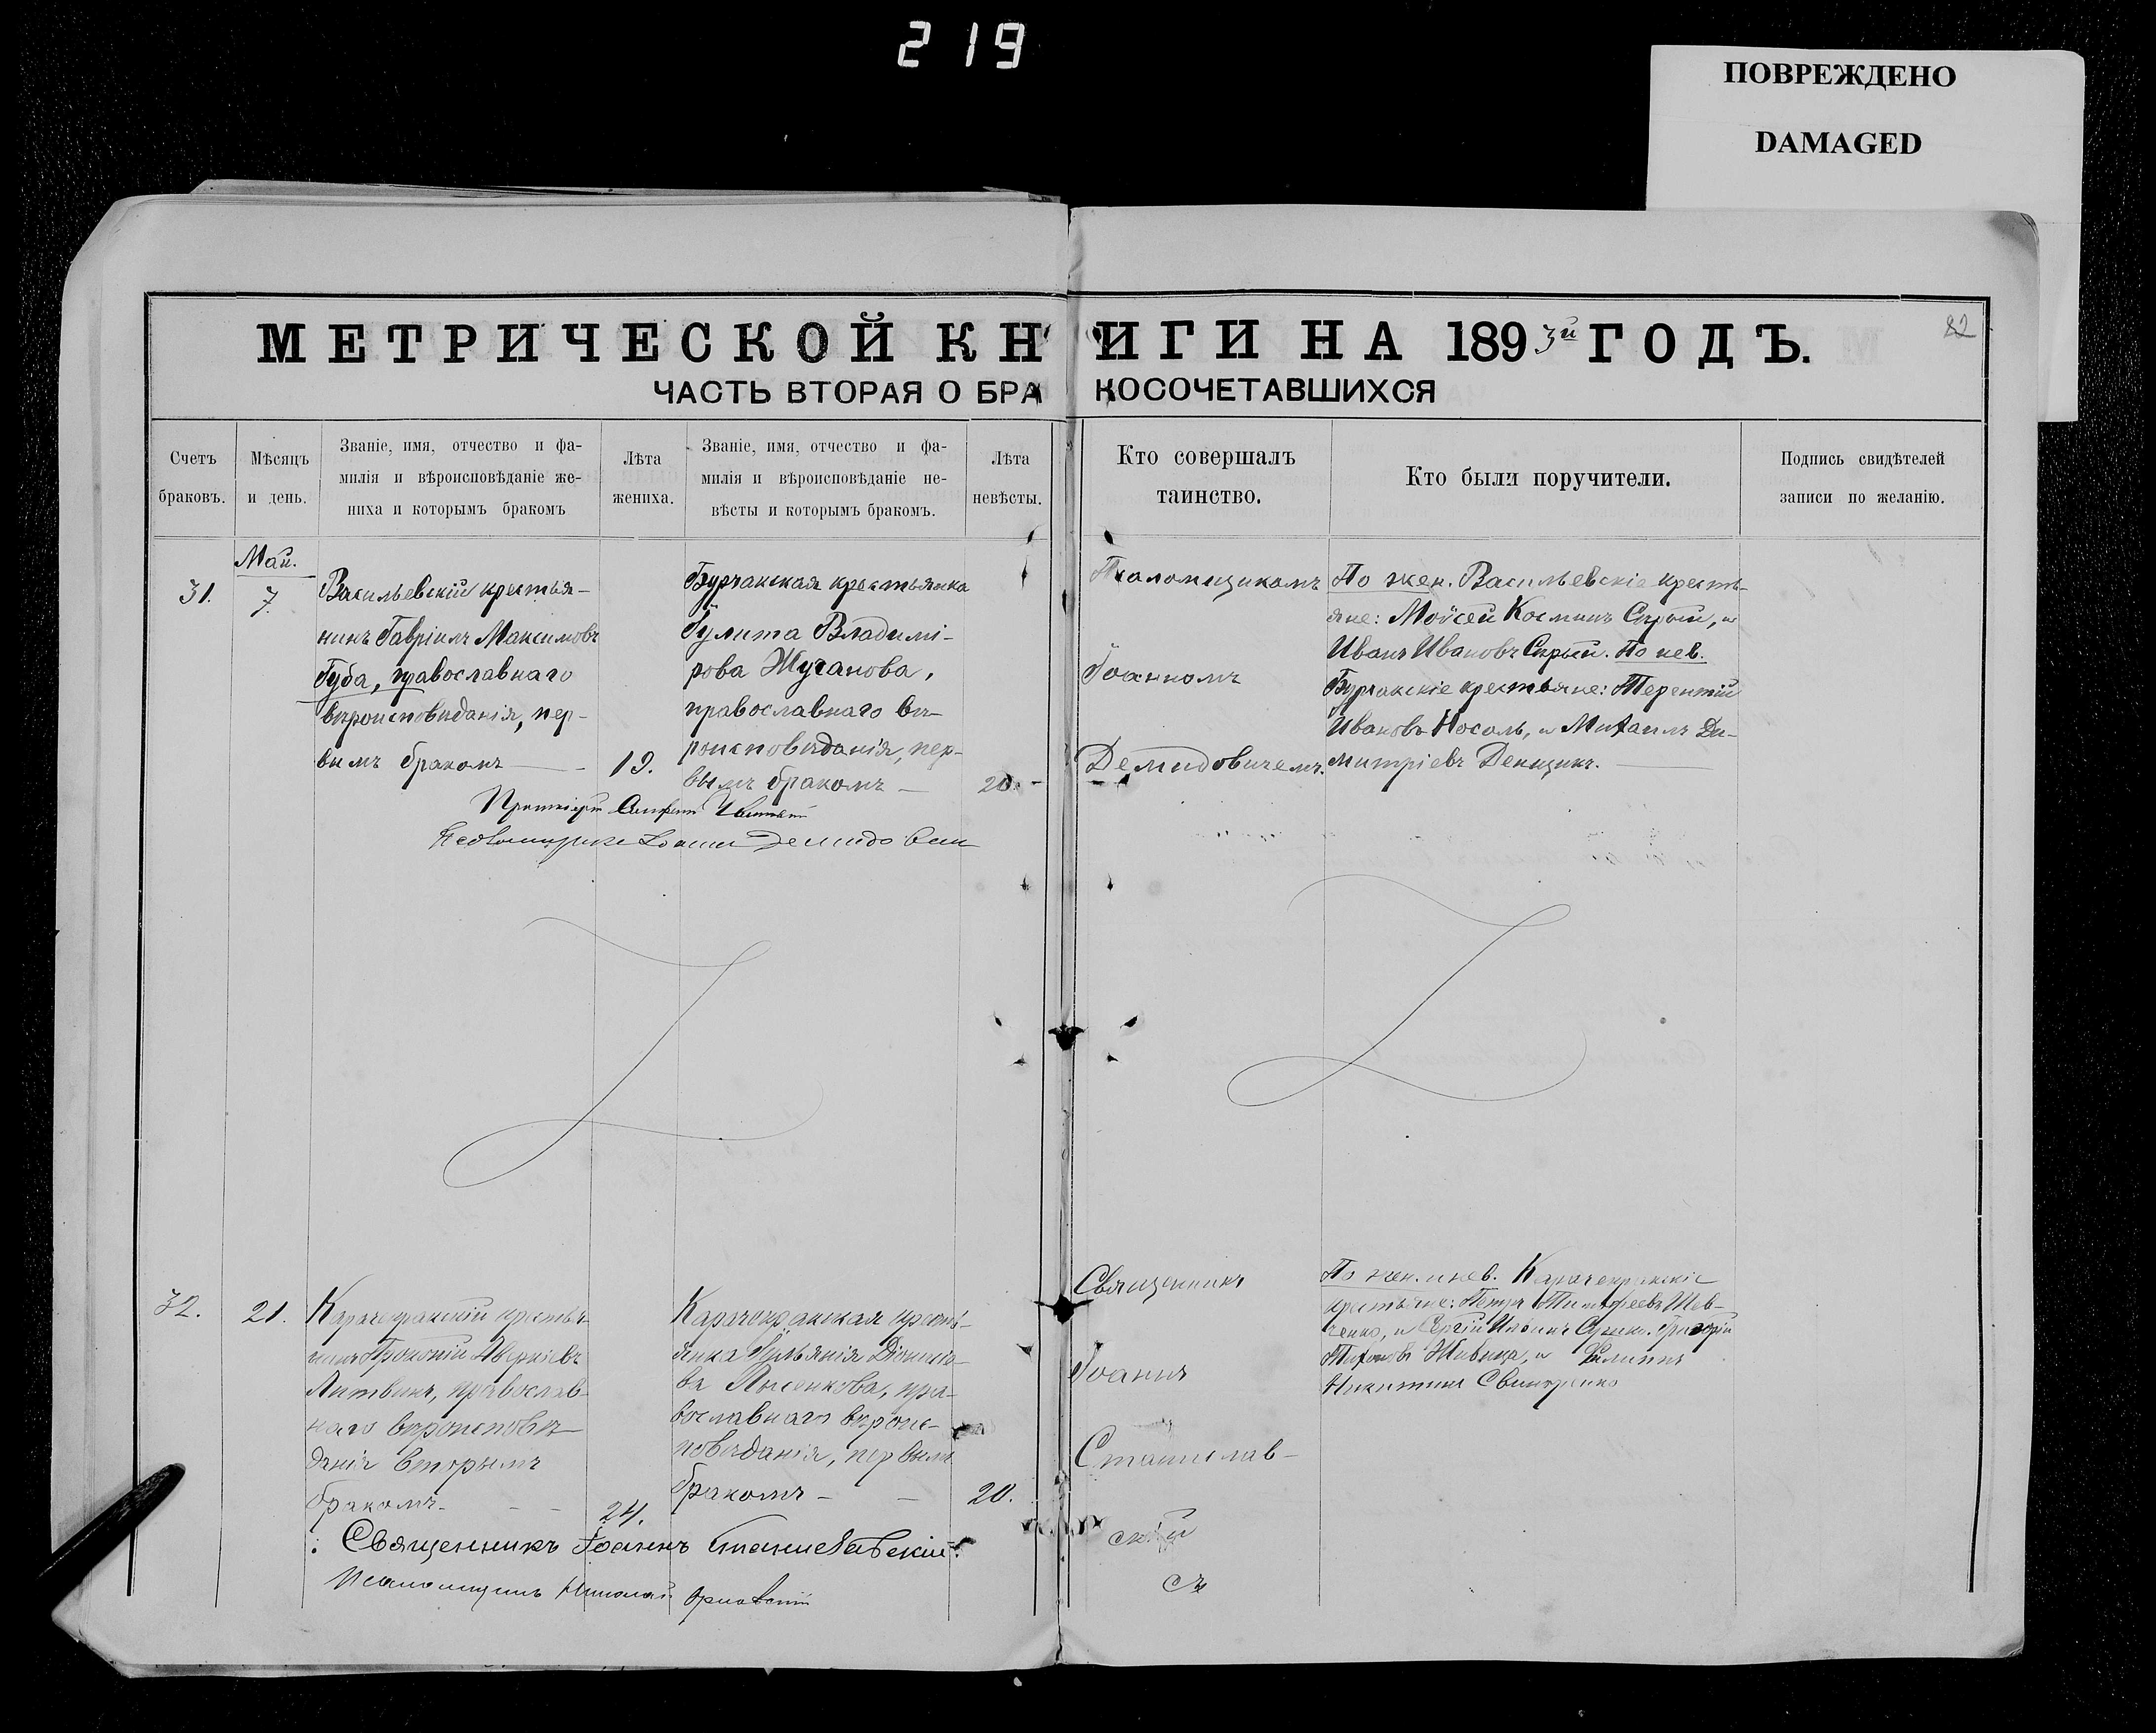 219
ПОВРЕЖДЕНО
DAMAGED
82
МЕТРИЧЕСКОЙ КНИГИ НА 1893й ГОДЪ.
ЧАСТЬ ВТОРАЯ О БРАКОСОЧЕТАВШИХСЯ
Счетъ
браковъ.
Мѣсяцъ
и день.
Званіе, имя, отчество и фа-
милія и вѣроисповѣданіе же-
ниха и которымъ бракомъ
Лѣта
жениха.
Званіе, имя, отчество и фа-
милія и вѣроисповѣданіе не-
вѣсты и которымъ бракомъ.
Лѣта
невѣсты.
Кто совершалъ
таинство.
Кто были поручители.
Подпись свидѣтелей
записи по желанію.
31.
Май.
7.
Васильевскій крестья-
нинъ Гавріилъ Максимовъ
Губа, православнаго
вѣроисповѣданія, пер-
вымъ бракомъ
19.
Бурчакская крестьянка
Іулита Владимі-
рова Жуганова,
православнаго вѣ-
роисповѣданія, пер-
вымъ бракомъ
20.
Псаломщикомъ
Іоанномъ
Демидовичемъ.
По жен. Васильевскіе кресть-
яне: Мойсей Косминъ Скрый, и
Иванъ Ивановъ Скрый. По нев.
Бурчакскіе крестьяне: Терентій
Ивановъ Носаль, и Михаилъ Ди-
митріевъ Денщикъ.
Протоіерей
Псаломщикъ Іоаннъ Демидовичъ
32.
21.
Карачекракскій крестья-
нинъ Прокопій Аверкіевъ
Литвинъ, православ-
наго вѣроисповѣ-
данія вторымъ
бракомъ
24.
Карачекракская кресть-
янка Іульянія Діонисіе-
ва Лысенкова, пра-
вославнаго вѣроис-
повѣданія, первымъ
бракомъ
20.
Священникъ
Іоаннъ
Станислав-
скій
съ
По жен. и нев. Карачекракскіе
крестьяне: Петръ Тимофеевъ Шев-
ченко, и Сергій Ильинъ Григорій
Тихоновъ и Филиппъ
Никитинъ Свинаренко
Священникъ Іоаннъ Станиславскій.
Псаломщикъ Николай Орловскій